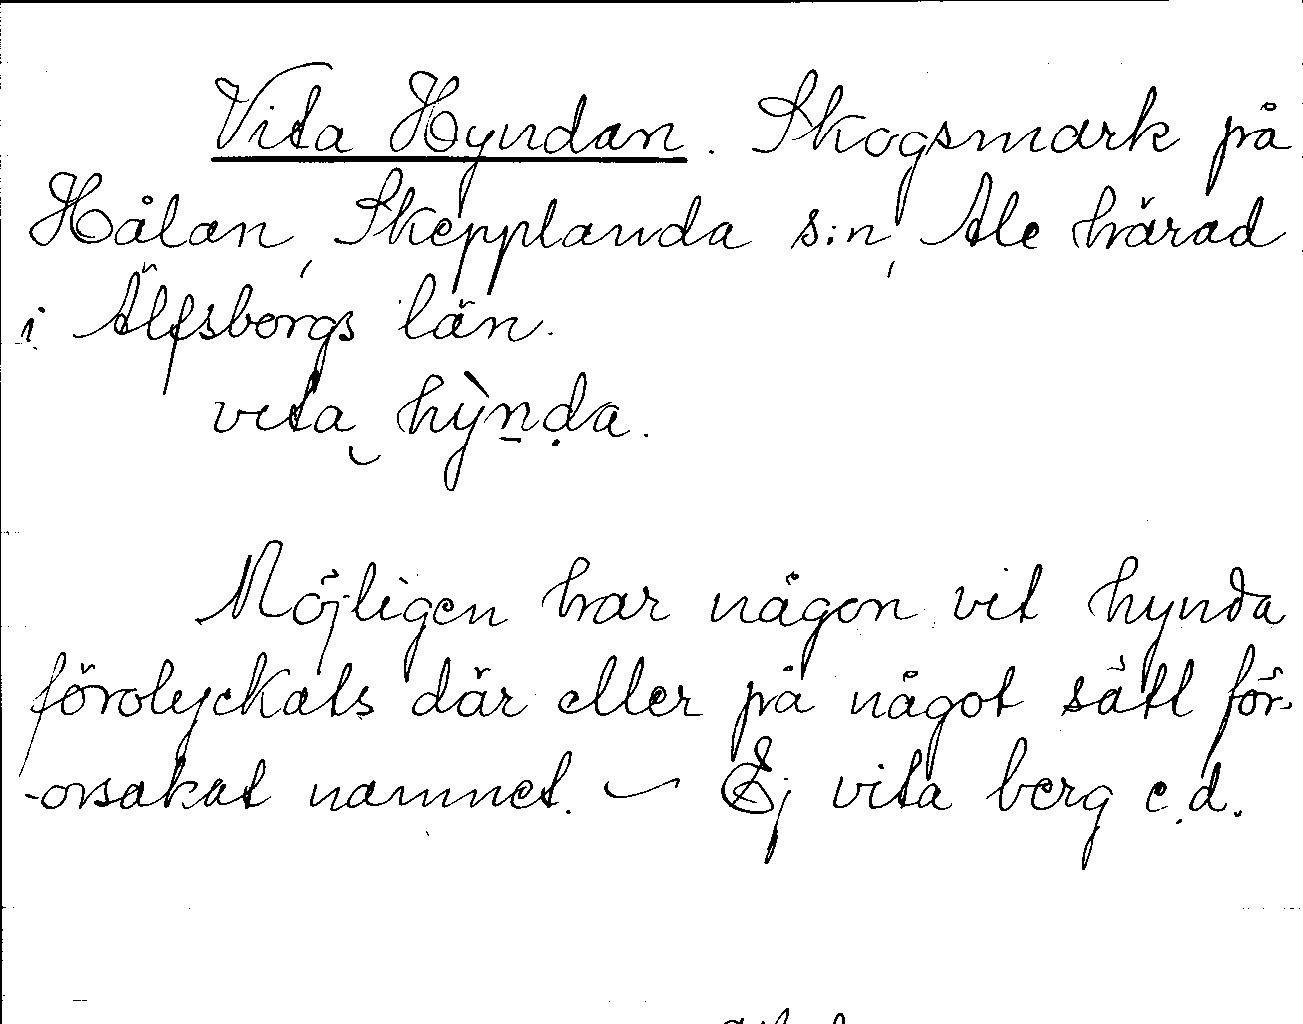 Vita Hyndan. Skogsmark på
Hålan, Skepplanda s:n, Ale härad
i Älfsborgs län.
veta hỳnda.
Möjligen har någon vit hynda
förolyckats där eller på något sätt för-
-orsakat namnet. – Ej vita berg e.d.